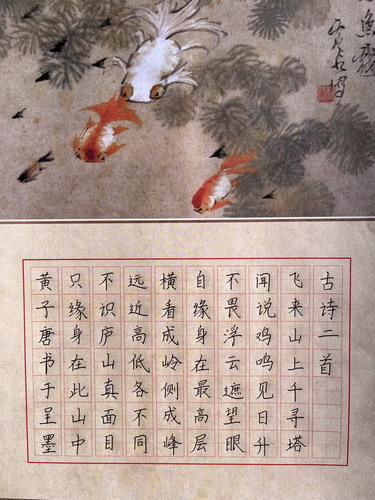 古诗二首
飞来山上千寻塔
闻说鸡鸣见日升
不畏浮云遮望眼
自缘身在最高层
横看成岭侧成峰
远近高低各不同
不识庐山真面目
只缘身在此山中
黄子唐书于呈墨